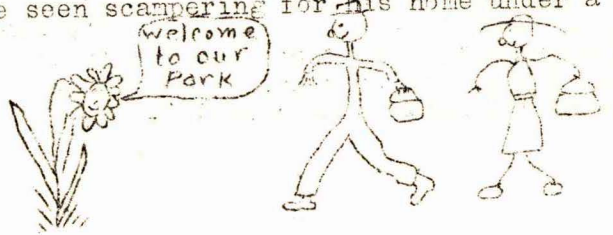 e seen scampering for his home under a
Welcome
to our
Park